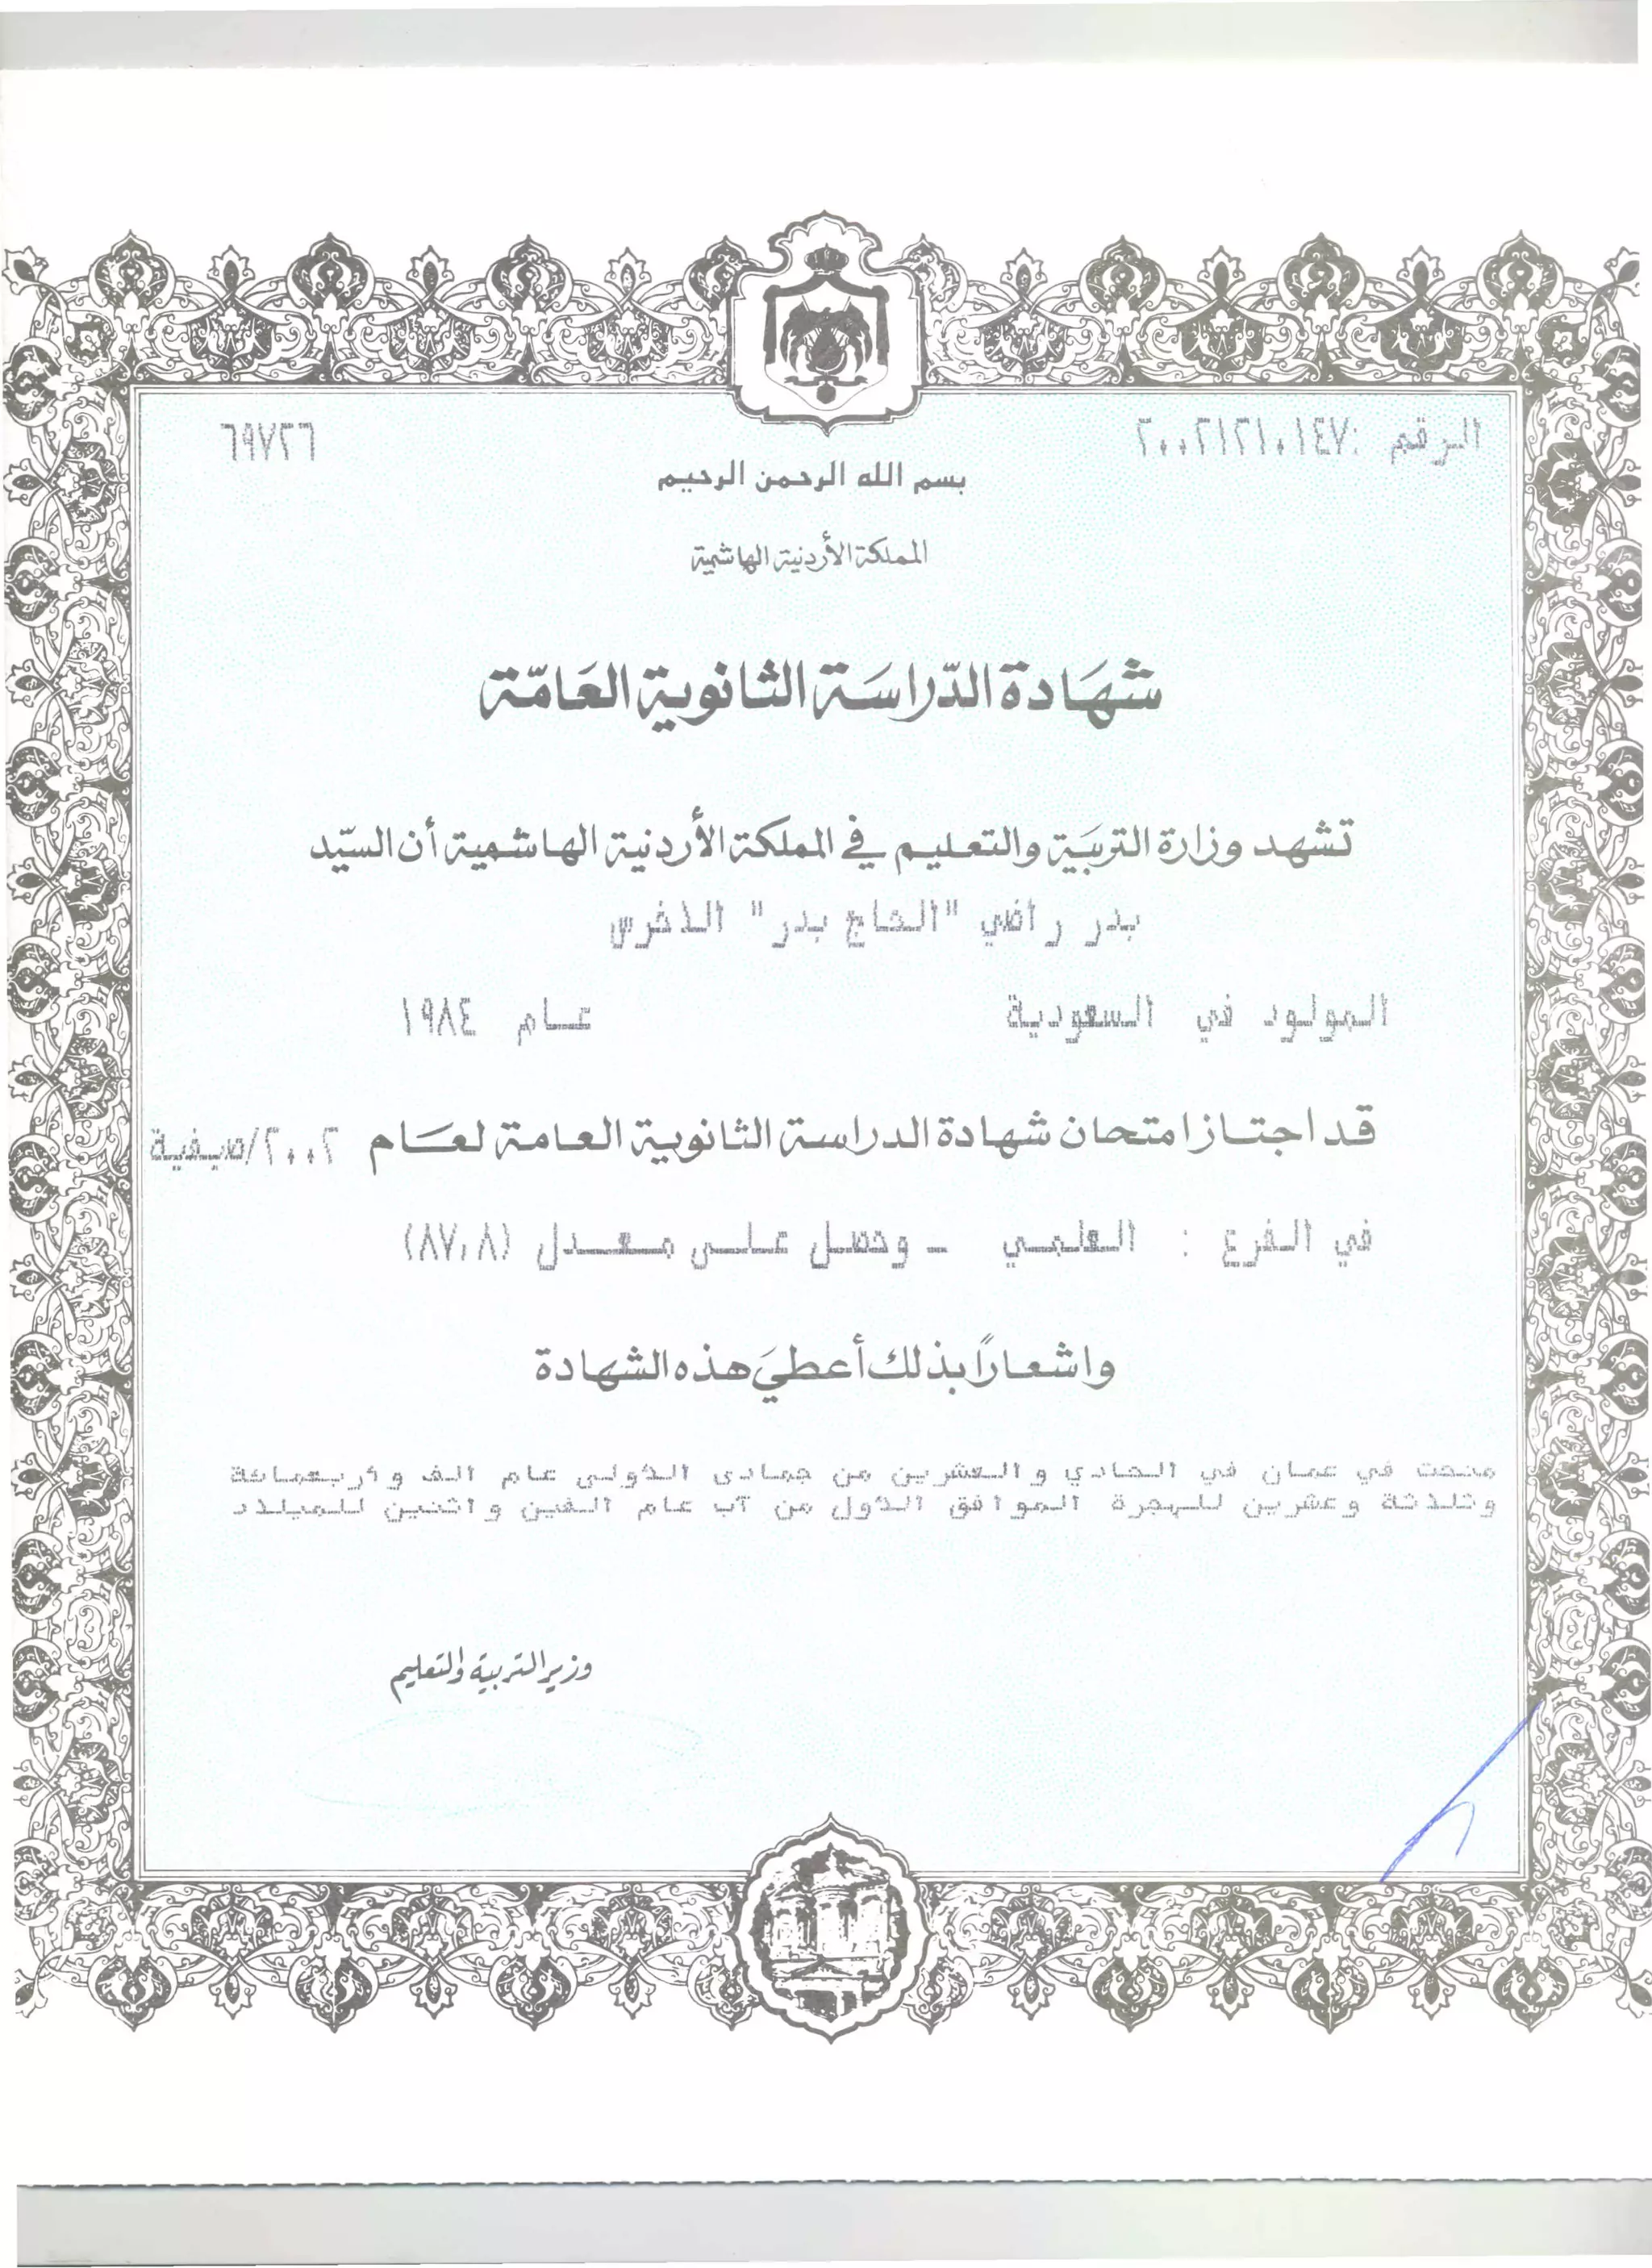 الرقم :٢٠٠٢١٢١٠١٤٧
٦٩٧٢٦
بسم الله الرحمن الرحيم
المملكة الأردنية الهاشمية
شهَادة الدّراسَة الثانوية العَامّة
تشهد وزارة التربيَة والتعليم في المملكة الأردنية الهاشمية أن السيّد
بدر راضي "الحاج بدر" الاخرس
المولود في السعودية عـام ١٩٨٤
قد اجتاز امتحان شهادة الدراسة الثانوية العامة لعَام ٢٠٠٢/صيفية
في الفرع : العلمي - وحصل على معدل (٨٧,٨)
واشعارًا بذلك أعطيَ هذه الشهادة
منحت في عمان في الحادي والعشرين من جمادى الاولى عام الف وأربعمائة
وثلاثة وعشرين للهجرة الموافق الاول من آب عام الفين واثنين للميلاد
وزير التربية والتعليم